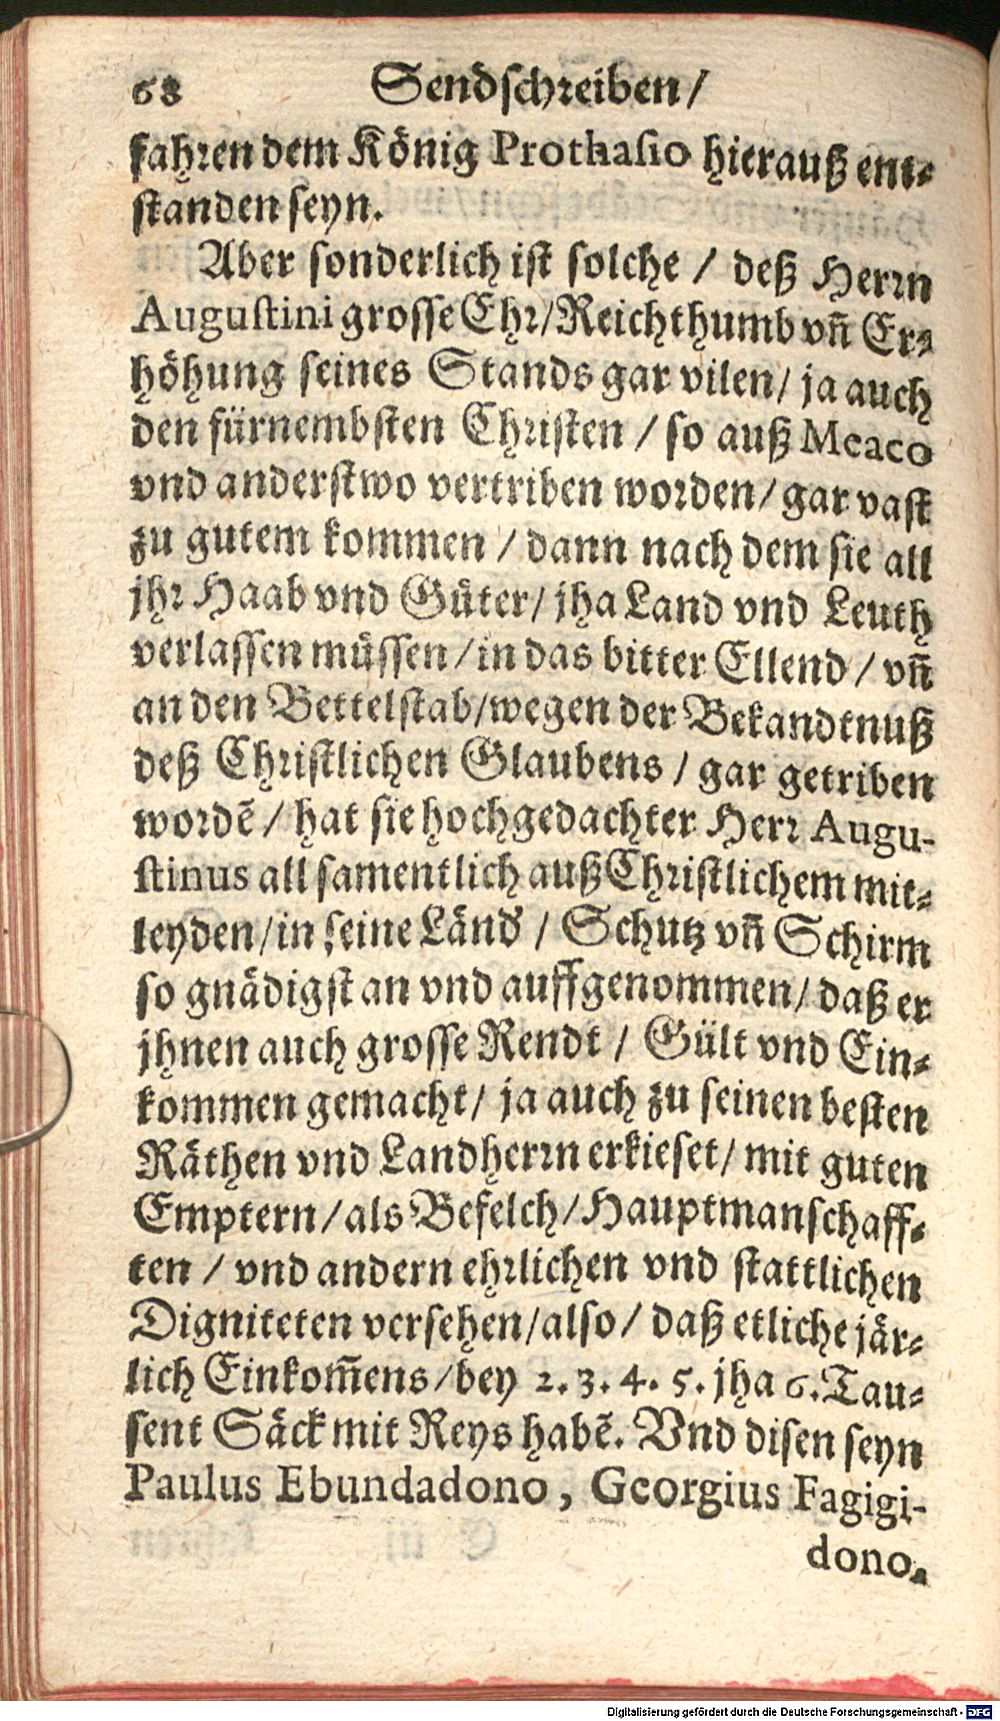 68 Sendschreiben/
fahren dem König Prothasio hierauß ent-
standen seyn.
Aber sonderlich ist solche / deß Herrn
Augustini grosse Ehr/Reichthumb vñ Er-
höhung seines Stands gar vilen/ ja auch
den fürnembsten Christen / so auß Meaco
vnd anderstwo vertriben worden/ gar vast
zu gutem kommen / dann nach dem sie all
jhr Haab vnd Güter/ jha Land vnd Leuth
verlassen müssen/in das bitter Ellend / vñ
an den Bettelstab/wegen der Bekandtnuß
deß Christlichen Glaubens / gar getriben
wordẽ / hat sie hochgedachter Herr Augu-
stinus all samentlich auß Christlichem mit-
leyden/in seine Länd / Schutz vñ Schirm
so gnädigst an vnd auffgenommen/ daß er
jhnen auch grosse Rendt / Gült vnd Ein-
kommen gemacht/ ja auch zu seinen besten
Räthen vnd Landherrn erkieset/ mit guten
Emptern/als Befelch/Hauptmanschaff-
ten / vnd andern ehrlichen vnd stattlichen
Digniteten versehen/also/ daß etliche jär-
lich Einkom̃ens/bey 2. 3. 4. 5. jha 6. Tau-
sent Säck mit Reys habẽ. Vnd disen seyn
Paulus Ebundadono, Georgius Fagigi-
dono.
Digitalisierung gefördert durch die Deutsche Forschungsgemeinschaft - DFG